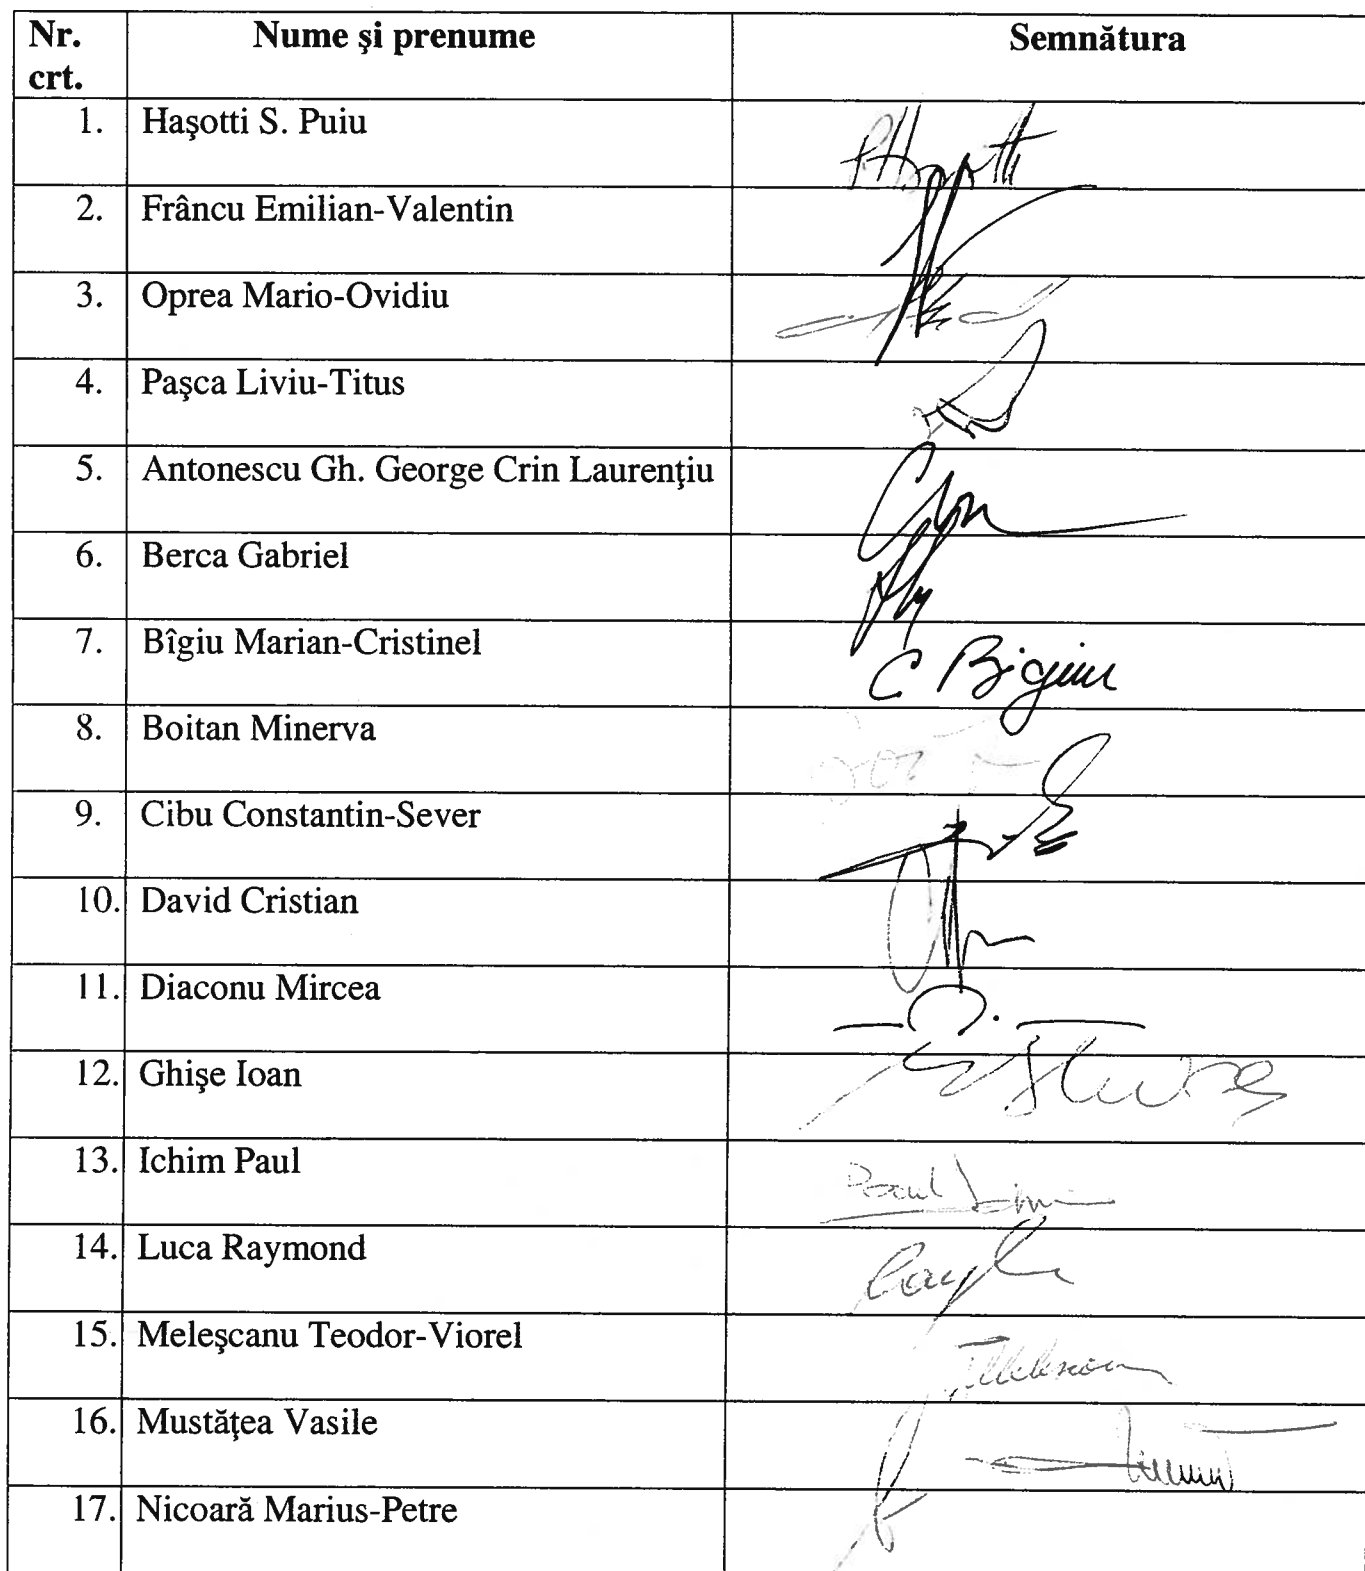 Nr. crt. Nume şi prenume Semnătura
1. Haşotti S. Puiu
2. Frâncu Emilian-Valentin
3. Oprea Mario-Ovidiu
4. Paşca Liviu-Titus
5. Antonescu Gh. George Crin Laurenţiu
6. Berca Gabriel
7. Bîgiu Marian-Cristinel C Bigiu
8. Boitan Minerva
9. Cibu Constantin-Sever
10. David Cristian
11. Diaconu Mircea
12. Ghişe Ioan
13. Ichim Paul Paul
14. Luca Raymond
15. Meleşcanu Teodor-Viorel
16. Mustăţea Vasile
17. Nicoară Marius-Petre